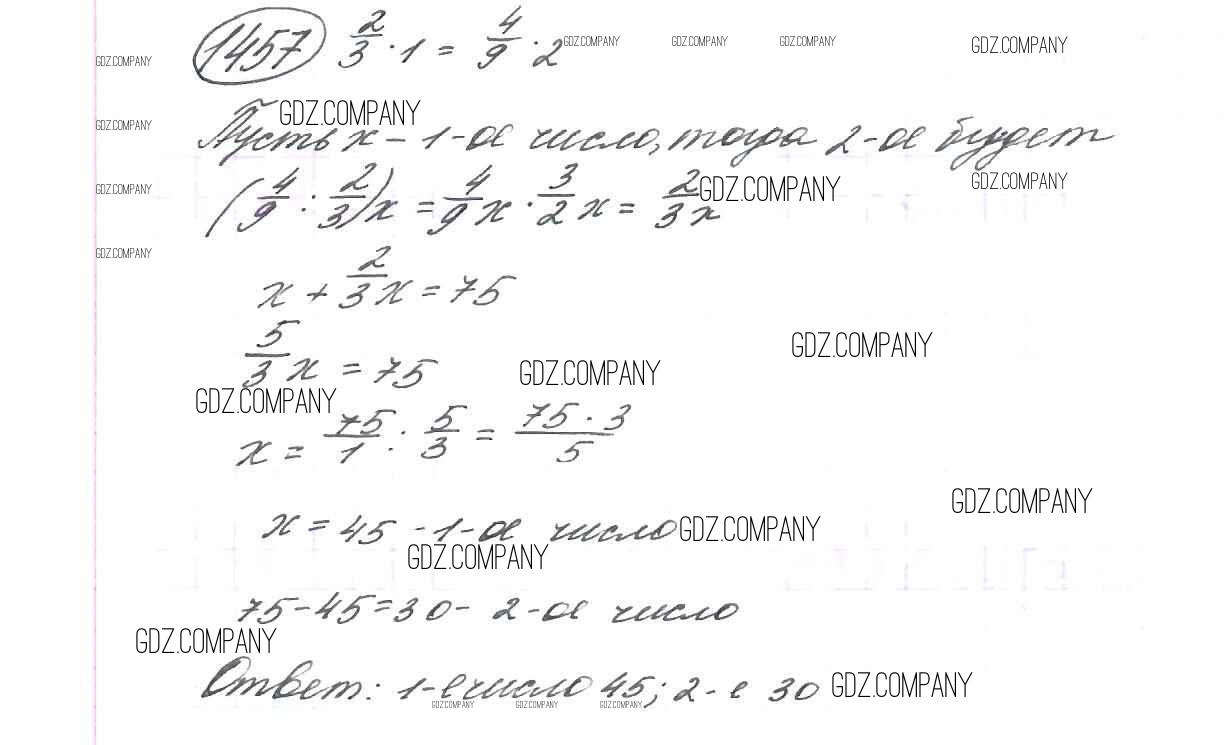 1457 2/3 · 1 = 4/9 · 2 GDZ.COMPANY GDZ.COMPANY GDZ.COMPANY GDZ.COMPANY
GDZ.COMPANY
GDZ.COMPANY
GDZ.COMPANY Пусть x - 1-ое число, тогда 2-ое будет
(4/9 : 2/3)x = 4/9 x · 3/2 x = 2/3 x GDZ.COMPANY GDZ.COMPANY
GDZ.COMPANY
GDZ.COMPANY
x + 2/3 x = 75
5/3 x = 75 GDZ.COMPANY GDZ.COMPANY
GDZ.COMPANY
x = 75/1 : 5/3 = 75 · 3/5
GDZ.COMPANY
x = 45 - 1-ое число GDZ.COMPANY
GDZ.COMPANY
75 - 45 = 30 - 2-ое число
GDZ.COMPANY
Ответ: 1-е число 45; 2-е 30 GDZ.COMPANY
GDZ.COMPANY GDZ.COMPANY GDZ.COMPANY